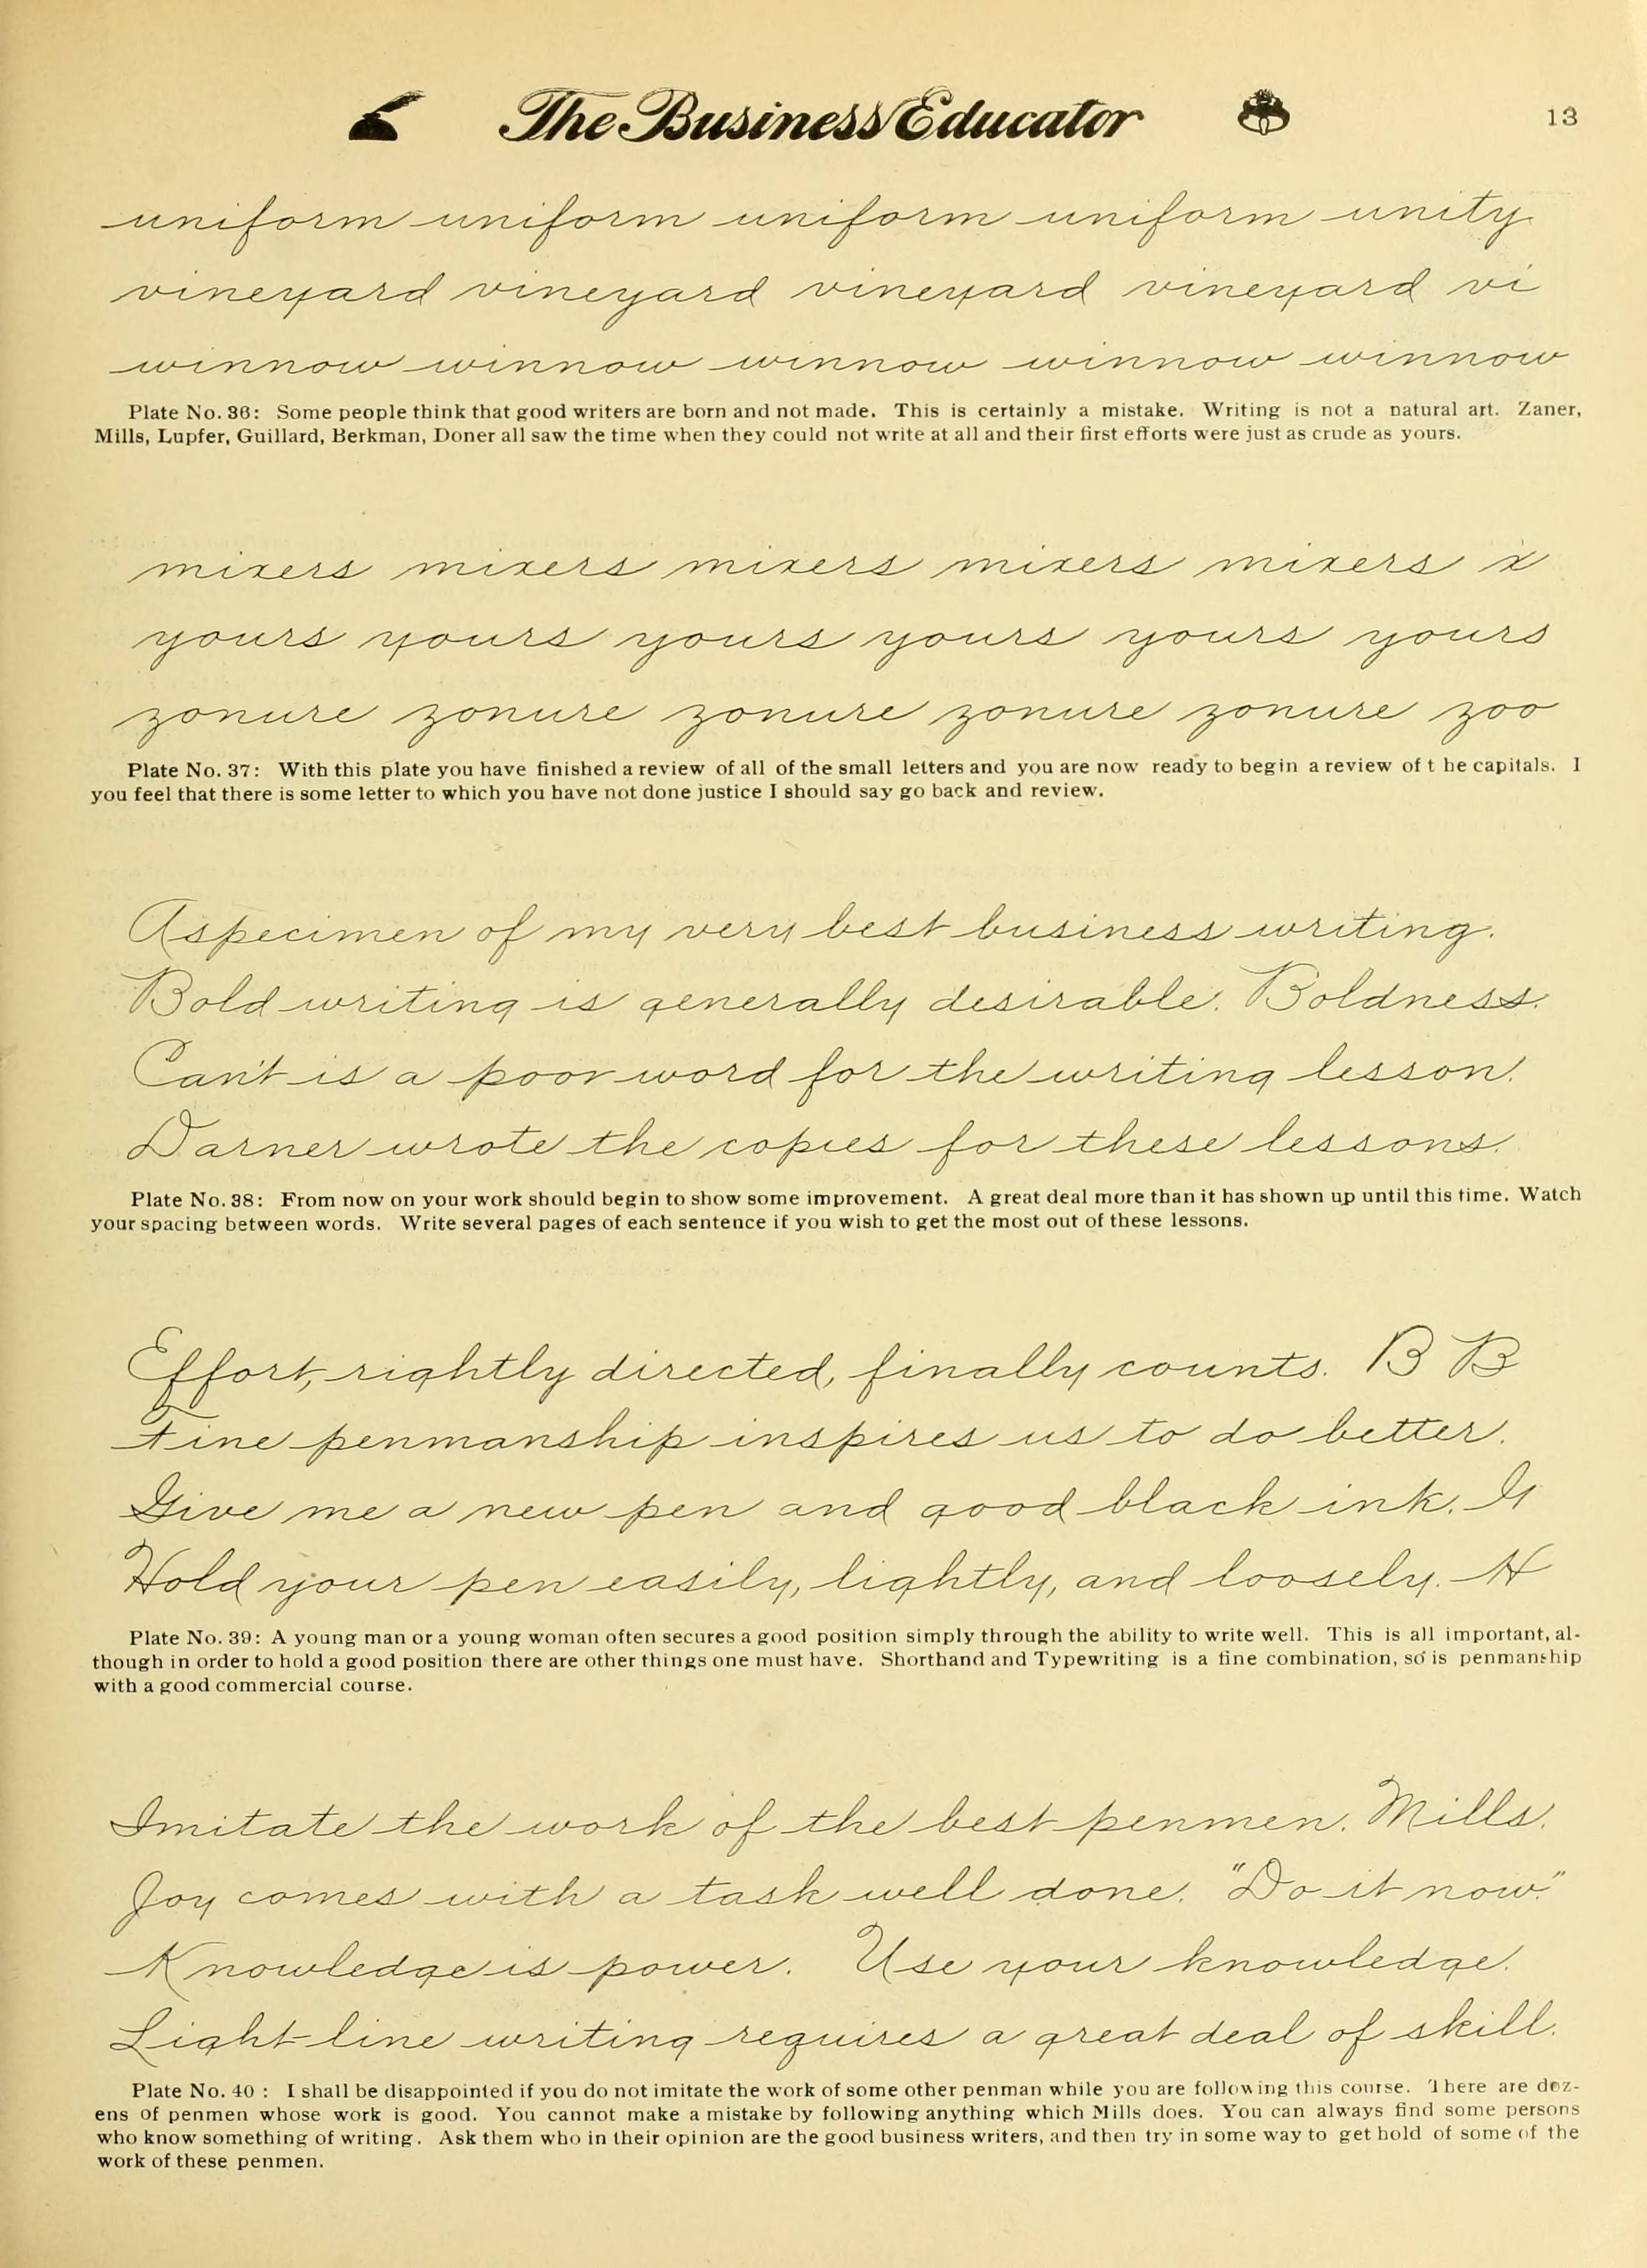 The Business Educator
13
uniform uniform uniform uniform unity
vineyard vineyard vineyard vineyard vi
winnow winnow winnow winnow winnow
Plate No. 36: Some people think that good writers are born and not made. This is certainly a mistake. Writing is not a natural art. Zaner,
Mills, Lupfer, Guillard, Berkman, Doner all saw the time when they could not write at all and their first efforts were just as crude as yours.
mixers mixers mixers mixers mixers x
yours yours yours yours yours yours
zonure zonure zonure zonure zonure zoo
Plate No. 37: With this plate you have finished a review of all of the small letters and you are now ready to begin a review of t he capitals. I
you feel that there is some letter to which you have not done justice I should say go back and review.
A specimen of my very best business writing.
Bold writing is generally desirable. Boldness.
Can't is a poor word for the writing lesson.
Darner wrote the copies for these lessons.
Plate No. 38: From now on your work should begin to show some improvement. A great deal more than it has shown up until this time. Watch
your spacing between words. Write several pages of each sentence if you wish to get the most out of these lessons.
Effort, rightly directed, finally counts. B B
Fine penmanship inspires us to do better.
Give me a new pen and good black ink. G
Hold your pen easily, lightly, and loosely. H
Plate No. 39: A young man or a young woman often secures a good position simply through the ability to write well. This is all important, al-
though in order to hold a good position there are other things one must have. Shorthand and Typewriting is a fine combination, so is penmanship
with a good commercial course.
Imitate the work of the best penmen. Mills.
Joy comes with a task well done. "Do it now."
Knowledge is power. Use your knowledge.
Light line writing requires a great deal of skill.
Plate No. 40 : I shall be disappointed if you do not imitate the work of some other penman while you are following this course. There are doz-
ens of penmen whose work is good. You cannot make a mistake by following anything which Mills does. You can always find some persons
who know something of writing. Ask them who in their opinion are the good business writers, and then try in some way to get hold of some of the
work of these penmen.